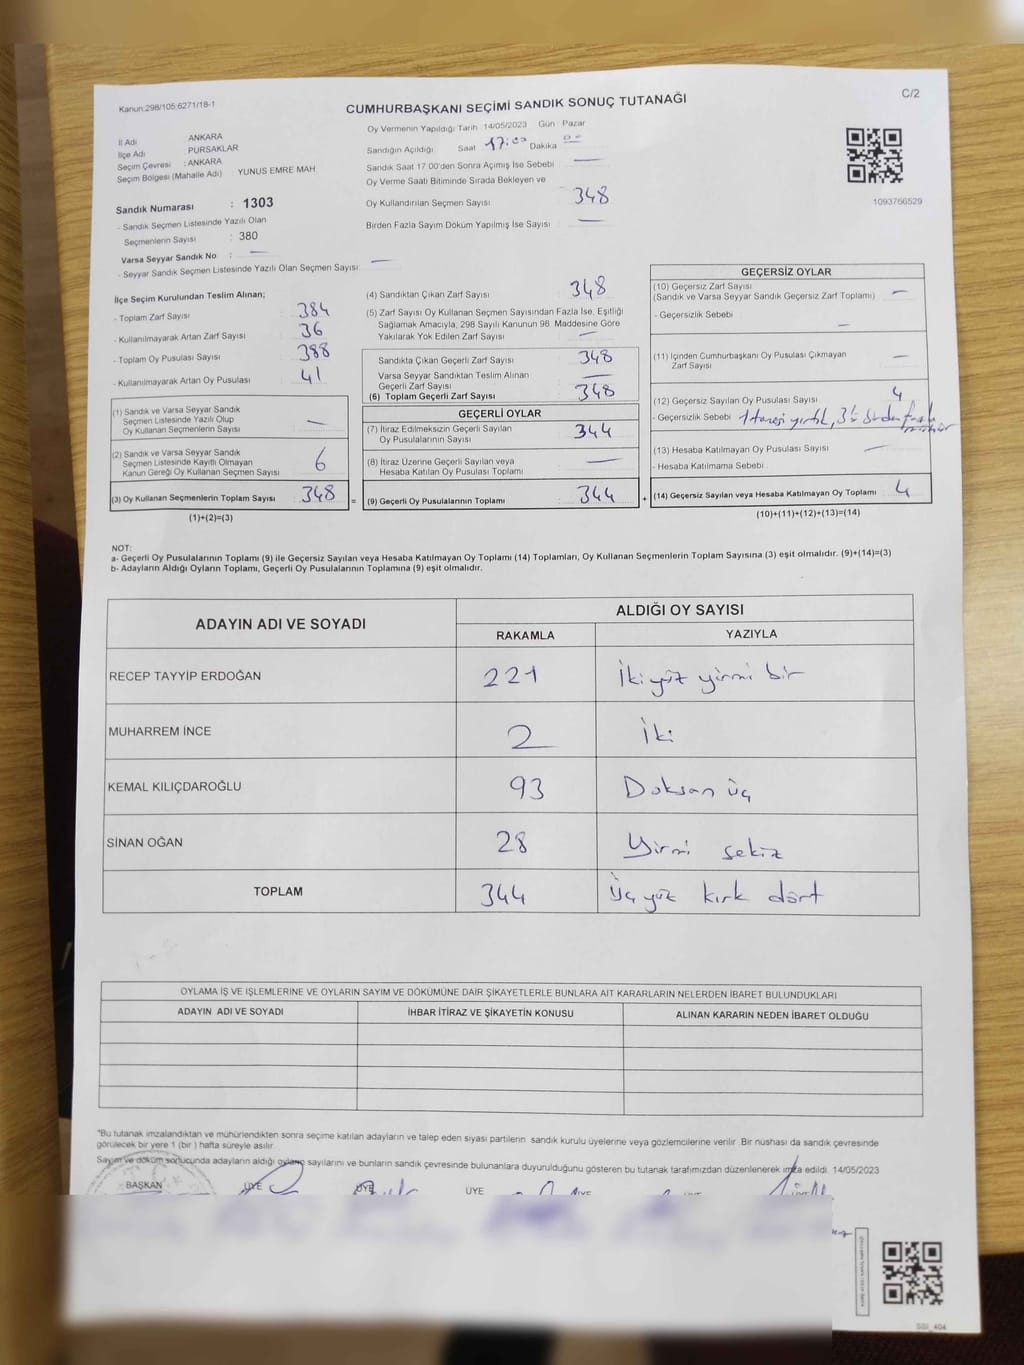 Kanun:298/105;6271/18-1
CUMHURBAŞKANI SEÇİMİ SANDIK SONUÇ TUTANAĞI
C/2
İl Adı ANKARA
İlçe Adı PURSAKLAR
Seçim Çevresi : ANKARA
Seçim Bölgesi (Mahalle Adı) : YUNUS EMRE MAH.
Sandık Numarası : 1303
- Sandık Seçmen Listesinde Yazılı Olan
Seçmenlerin Sayısı : 380
Varsa Seyyar Sandık No : —
- Seyyar Sandık Seçmen Listesinde Yazılı Olan Seçmen Sayısı: —
Oy Vermenin Yapıldığı Tarih 14/05/2023 Gün : Pazar
Sandığın Açıldığı Saat 17:00 Dakika 00
Sandık Saat 17.00'den Sonra Açılmış İse Sebebi —
Oy Verme Saati Bitiminde Sırada Bekleyen ve
Oy Kullandırılan Seçmen Sayısı 348
Birden Fazla Sayım Döküm Yapılmış İse Sayısı —
1093766529
İlçe Seçim Kurulundan Teslim Alınan;
- Toplam Zarf Sayısı : 384
- Kullanılmayarak Artan Zarf Sayısı : 36
- Toplam Oy Pusulası Sayısı : 388
- Kullanılmayarak Artan Oy Pusulası : 41
(1) Sandık ve Varsa Seyyar Sandık
Seçmen Listesinde Yazılı Olup
Oy Kullanan Seçmenlerin Sayısı —
(2) Sandık ve Varsa Seyyar Sandık
Seçmen Listesinde Kayıtlı Olmayan
Kanun Gereği Oy Kullanan Seçmen Sayısı 6
(3) Oy Kullanan Seçmenlerin Toplam Sayısı : 348 =
(1)+(2)=(3)
(4) Sandıktan Çıkan Zarf Sayısı 348
(5) Zarf Sayısı Oy Kullanan Seçmen Sayısından Fazla İse, Eşitliği
Sağlamak Amacıyla, 298 Sayılı Kanunun 98. Maddesine Göre
Yakılarak Yok Edilen Zarf Sayısı : —
Sandıkta Çıkan Geçerli Zarf Sayısı : 348
Varsa Seyyar Sandıktan Teslim Alınan
Geçerli Zarf Sayısı —
(6) Toplam Geçerli Zarf Sayısı : 348
GEÇERLİ OYLAR
(7) İtiraz Edilmeksizin Geçerli Sayılan
Oy Pusulalarının Sayısı 344
(8) İtiraz Üzerine Geçerli Sayılan veya
Hesaba Katılan Oy Pusulası Toplamı : —
(9) Geçerli Oy Pusulalarının Toplamı : 344 +
GEÇERSİZ OYLAR
(10) Geçersiz Zarf Sayısı
(Sandık ve Varsa Seyyar Sandık Geçersiz Zarf Toplamı) —
- Geçersizlik Sebebi : —
(11) İçinden Cumhurbaşkanı Oy Pusulası Çıkmayan
Zarf Sayısı —
(12) Geçersiz Sayılan Oy Pusulası Sayısı : 4
- Geçersizlik Sebebi 1 tanesi yırtık, 3'ü birden fazla
mühür
(13) Hesaba Katılmayan Oy Pusulası Sayısı : —
- Hesaba Katılmama Sebebi
(14) Geçersiz Sayılan veya Hesaba Katılmayan Oy Toplamı : 4
(10)+(11)+(12)+(13)=(14)
NOT:
a- Geçerli Oy Pusulalarının Toplamı (9) ile Geçersiz Sayılan veya Hesaba Katılmayan Oy Toplamı (14) Toplamları, Oy Kullanan Seçmenlerin Toplam Sayısına (3) eşit olmalıdır. (9)+(14)=(3)
b- Adayların Aldığı Oyların Toplamı, Geçerli Oy Pusulalarının Toplamına (9) eşit olmalıdır.
ADAYIN ADI VE SOYADI
ALDIĞI OY SAYISI
RAKAMLA YAZIYLA
RECEP TAYYİP ERDOĞAN 221 İki yüz yirmi bir
MUHARREM İNCE 2 İki
KEMAL KILIÇDAROĞLU 93 Doksan üç
SİNAN OĞAN 28 Yirmi sekiz
TOPLAM 344 Üç yüz kırk dört
OYLAMA İŞ VE İŞLEMLERİNE VE OYLARIN SAYIM VE DÖKÜMÜNE DAİR ŞİKAYETLERLE BUNLARA AİT KARARLARIN NELERDEN İBARET BULUNDUKLARI
ADAYIN ADI VE SOYADI İHBAR İTİRAZ VE ŞİKAYETİN KONUSU ALINAN KARARIN NEDEN İBARET OLDUĞU
*Bu tutanak imzalandıktan ve mühürlendikten sonra seçime katılan adayların ve talep eden siyasi partilerin sandık kurulu üyelerine veya gözlemcilerine verilir. Bir nüshası da sandık çevresinde
görülecek bir yere 1 (bir) hafta süreyle asılır.
Sayım ve döküm sonucunda adayların aldığı oyların sayılarını ve bunların sandık çevresinde bulunanlara duyurulduğunu gösteren bu tutanak tarafımızdan düzenlenerek imza edildi. 14/05/2023
BAŞKAN ÜYE ÜYE ÜYE ÜYE